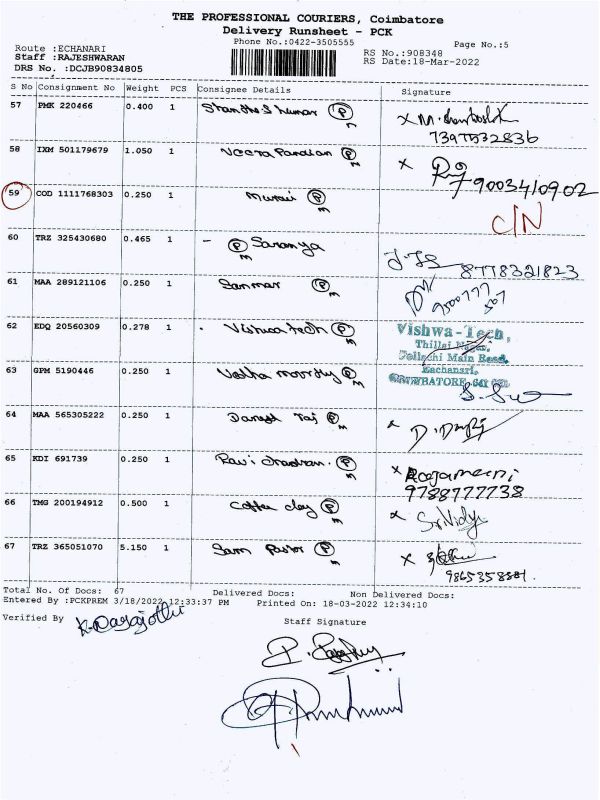 THE PROFESSIONAL COURIERS, Coimbatore
Delivery Runsheet - PCK
Phone No.:0422-3505555
Page No.:5
Route :ECHANARI
Staff :RAJESHWARAN
DRS No. :DCJB90834805
RS No.:908348
RS Date:18-Mar-2022
S No Consignment No Weight PCS Consignee Details Signature
57 PMK 220466 0.400 1 Kumar P m
7397532836
58 IXM 501179679 1.050 1 Veera Pandian P m
9003410902
59 COD 1111768303 0.250 1 Murali P m
C/N
60 TRZ 325430680 0.465 1 - P m Saranya
8778321823
61 MAA 289121106 0.250 1 Sanmar P m
62 EDQ 20560309 0.278 1 Vishwa tech P m
Vishwa-Tech,
Thillai Nagar,
Pollachi Main Road,
Eachanari,
COIMBATORE-641
63 GPM 5190446 0.250 1 moorthy P m
64 MAA 565305222 0.250 1 Danesh Raj P m
65 KDI 691739 0.250 1 Ravi chandran. P m
Rajamani
9788777738
66 TMG 200194912 0.500 1 Coffee day P m
SriVidy
67 TRZ 365051070 5.150 1 Sam Pastor P m
9865358881.
Total No. Of Docs: 67 Delivered Docs: Non Delivered Docs:
Entered By :PCKPREM 3/18/2022 12:33:37 PM Printed On: 18-03-2022 12:34:10
Verified By
Staff Signature